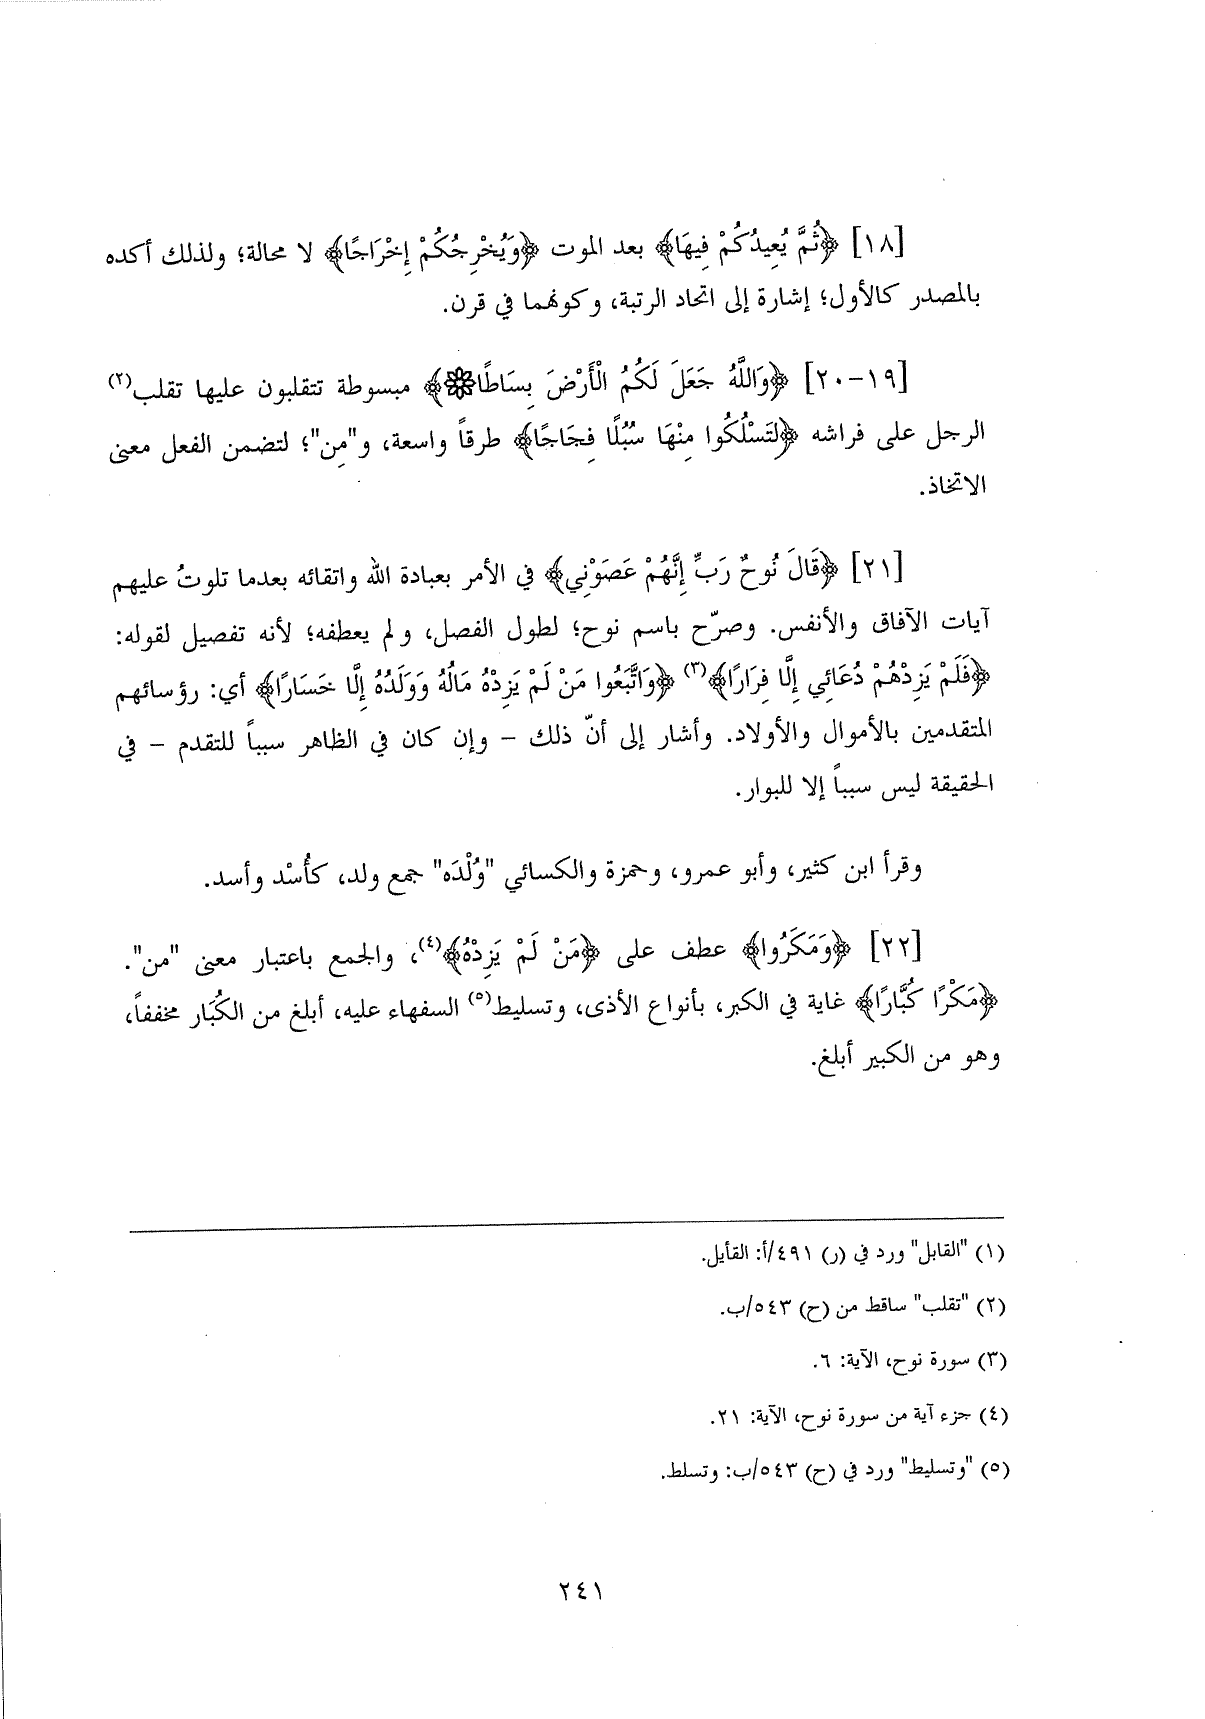 [١٨] ﴿ثُمَّ يُعِيدُكُمْ فِيهَا﴾ بعد الموت ﴿وَيُخْرِجُكُمْ إِخْرَاجًا﴾ لا محالة؛ ولذلك أكده
بالمصدر كالأول؛ إشارة إلى اتحاد الرتبة، وكونهما في قرن.
[١٩-٢٠] ﴿وَاللَّهُ جَعَلَ لَكُمُ الْأَرْضَ بِسَاطًا۞﴾ مبسوطة تتقلبون عليها تقلب(٢)
الرجل على فراشه ﴿لِتَسْلُكُوا مِنْهَا سُبُلًا فِجَاجًا﴾ طرقاً واسعة، و"مِن"؛ لتضمن الفعل معنى
الاتخاذ.
[٢١] ﴿قَالَ نُوحٌ رَبِّ إِنَّهُمْ عَصَوْنِي﴾ في الأمر بعبادة الله واتقائه بعدما تلوتُ عليهم
آيات الآفاق والأنفس. وصرّح باسم نوح؛ لطول الفصل، ولم يعطفه؛ لأنه تفصيل لقوله:
﴿فَلَمْ يَزِدْهُمْ دُعَائِي إِلَّا فِرَارًا﴾(٣) ﴿وَاتَّبَعُوا مَنْ لَمْ يَزِدْهُ مَالُهُ وَوَلَدُهُ إِلَّا خَسَارًا﴾ أي: رؤسائهم
المتقدمين بالأموال والأولاد. وأشار إلى أنّ ذلك – وإن كان في الظاهر سبباً للتقدم – في
الحقيقة ليس سبباً إلا للبوار.
وقرأ ابن كثير، وأبو عمرو، وحمزة والكسائي "وُلْدَه" جمع ولد، كأُسْد وأسد.
[٢٢] ﴿وَمَكَرُوا﴾ عطف على ﴿مَنْ لَمْ يَزِدْهُ﴾(٤)، والجمع باعتبار معنى "من".
﴿مَكْرًا كُبَّارًا﴾ غاية في الكبر، بأنواع الأذى، وتسليط(٥) السفهاء عليه، أبلغ من الكُبَار مخففاً،
وهو من الكبير أبلغ.
(١) "القابل" ورد في (ر) ٤٩١/أ: القأيل.
(٢) "تقلب" ساقط من (ح) ٥٤٣/ب.
(٣) سورة نوح، الآية: ٦.
(٤) جزء آية من سورة نوح، الآية: ٢١.
(٥) "وتسليط" ورد في (ح) ٥٤٣/ب: وتسلط.
٢٤١